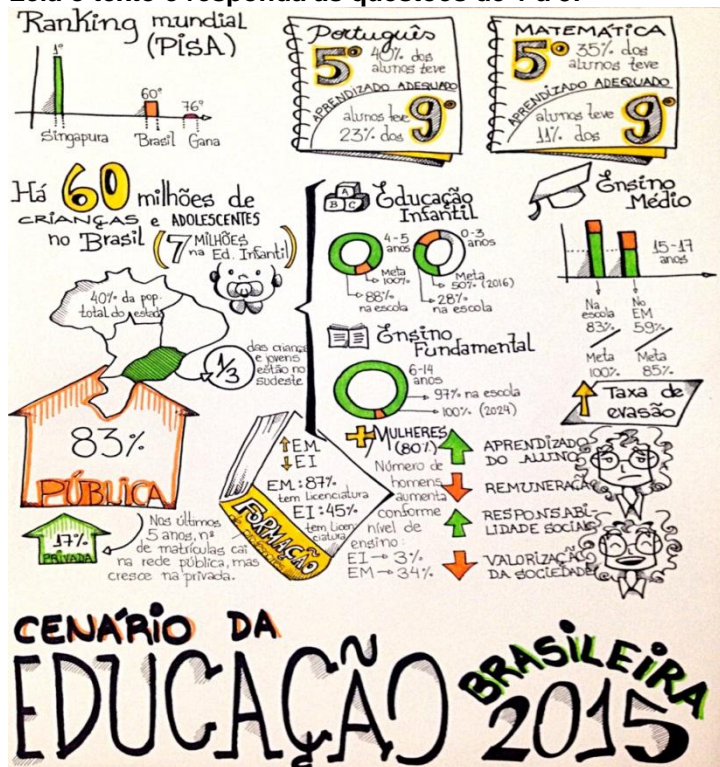 Leia o texto e responda as questões de 1 a 5.
Ranking mundial
(PiSA)
1º
60º
76º
Singapura Brasil Gana
Português
5º 40% dos
alunos teve
APRENDIZADO ADEQUADO
alunos teve
23% dos 9º
MATEMÁTICA
5º 35% dos
alunos teve
APRENDIZADO ADEQUADO
alunos teve
11% dos 9º
Há 60 milhões de
CRIANÇAS e ADOLESCENTES
no Brasil (7 MILHÕES
na Ed. Infantil)
40% da pop.
total do estado
1/3
das crianças
e jovens
estão no
sudeste
83%
PÚBLICA
17%
PRIVADA
Nos últimos
5 anos, nº
de matrículas cai
na rede pública, mas
cresce na privada.
A B C
Educação
Infantil
4-5
anos
Meta
100%
88%
na escola
0-3
anos
Meta
50% (2016)
28%
na escola
Ensino
Fundamental
6-14
anos
97% na escola
100% (2024)
Ensino
Médio
15-17
anos
Na
escola
83%
Meta
100%
No
EM
59%
Meta
85%
Taxa de
evasão
EM
EI
EM: 87%
tem Licenciatura
EI: 45%
tem Licen
ciatura
FORMAÇÃO
+ MULHERES
(80%)
Número de
homens
aumenta
conforme
nível de
ensino:
EI → 3%
EM → 34%
APRENDIZADO
DO ALUNO
REMUNERAÇÃO
RESPONSABI-
LIDADE SOCIAL
VALORIZAÇÃO
DA SOCIEDADE
CENÁRIO DA
EDUCAÇÃO
BRASILEiRA
2015